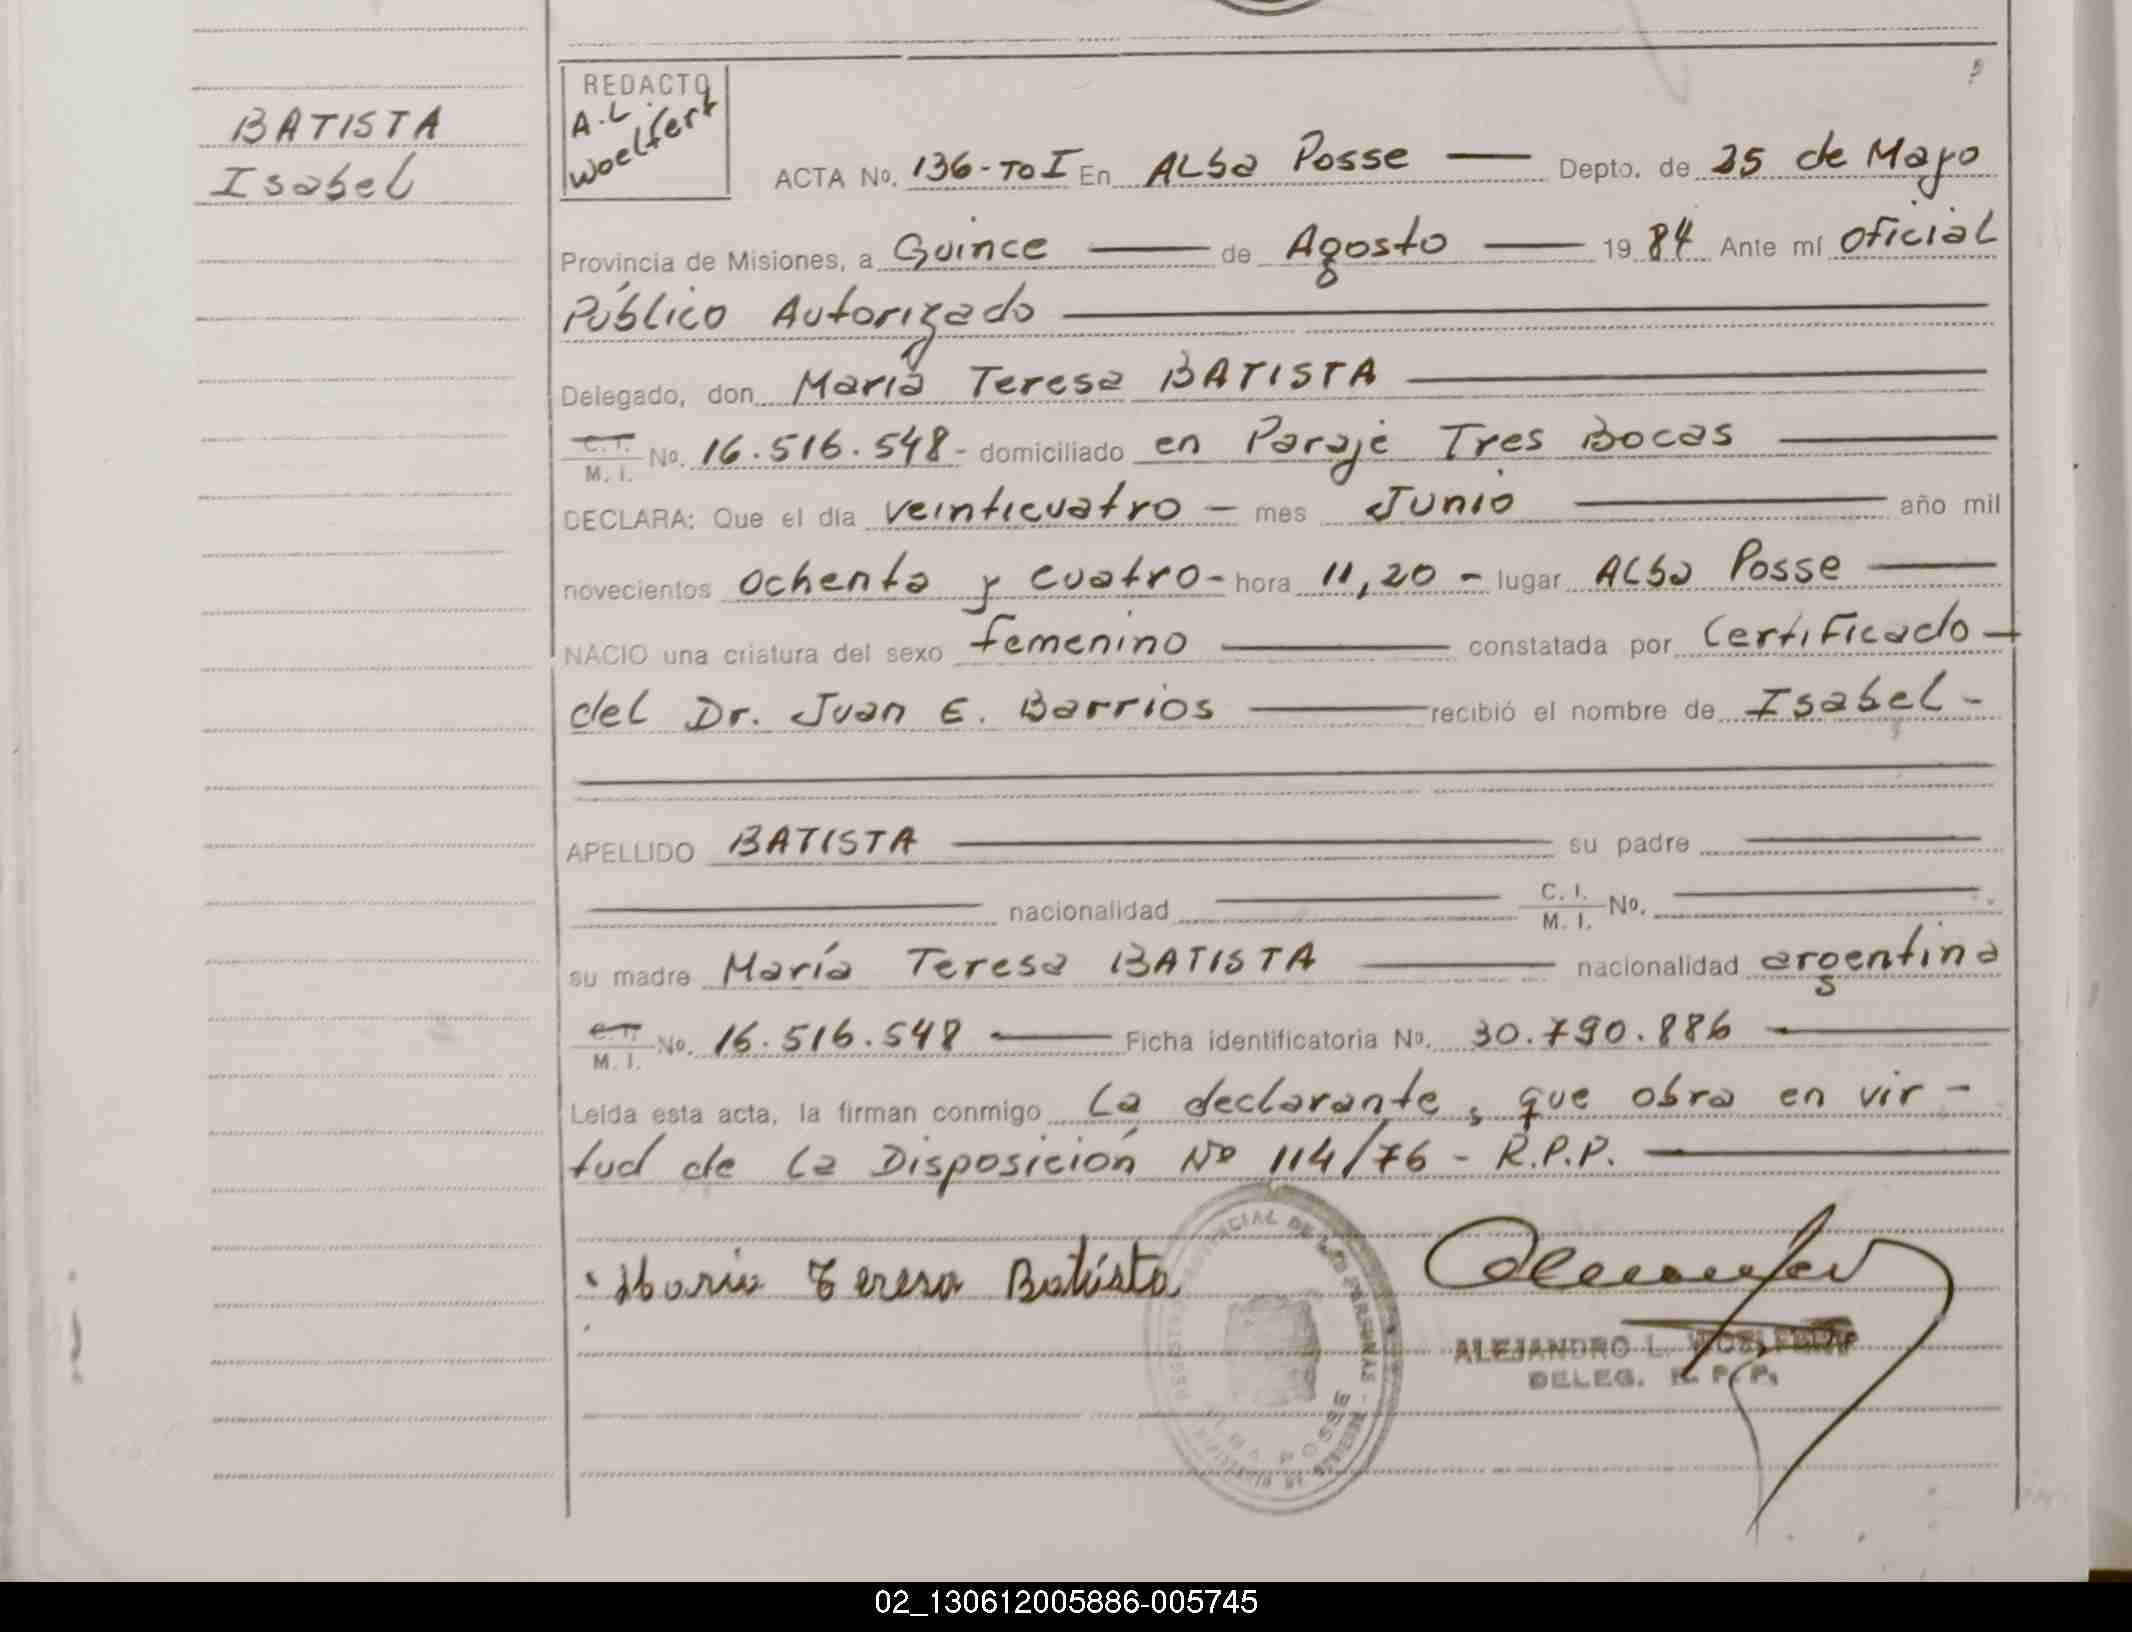 BATISTA
Isabel
REDACTO
A.L.
Woelfert
ACTA No. 136-To I En Alba Posse — Depto. de 25 de Mayo
Provincia de Misiones, a Quince — de Agosto — 19 84 Ante mí Oficial
Público Autorizado —
Delegado, don María Teresa BATISTA —
C.I. / M. I. No. 16.516.548 - domiciliado en Paraje Tres Bocas —
DECLARA: Que el día veinticuatro — mes Junio — año mil
novecientos ochenta y cuatro - hora 11,20 - lugar Alba Posse —
NACIO una criatura del sexo femenino — constatada por Certificado —
del Dr. Juan E. Barrios — recibió el nombre de Isabel -
APELLIDO BATISTA — su padre —
— nacionalidad — C. I. / M. I. No. —
su madre María Teresa BATISTA — nacionalidad argentina
C.I. / M. I. No. 16.516.548 — Ficha identificatoria No. 30.790.886 —
Leída esta acta, la firman conmigo La declarante, que obra en vir -
tud de la Disposición No 114/76 - R.P.P. —
Maria Teresa Batista
ALEJANDRO L. WOELFERT
DELEG. R. P. P.
PROVINCIAL DE LAS PERSONAS - MISIONES
ALBA POSSE
02_130612005886-005745